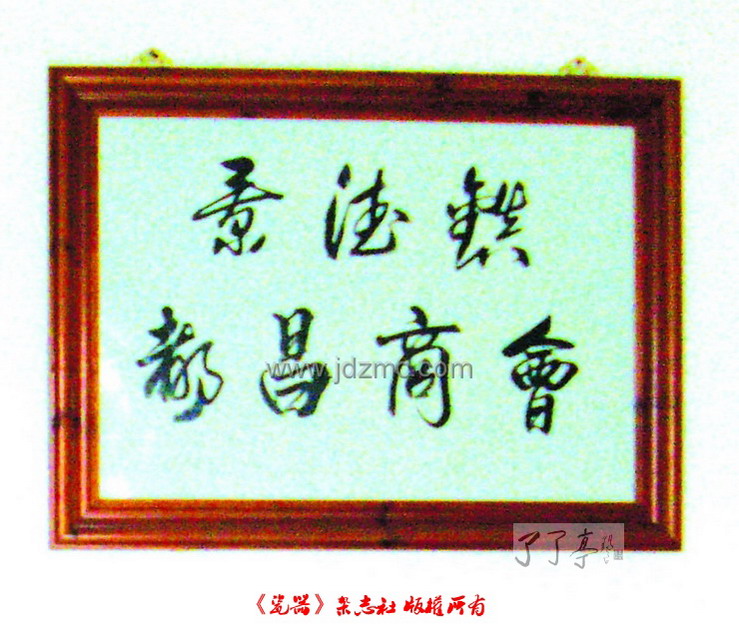 景德鎮
都昌商會
www.jdzmd.com
了了亭
《瓷器》杂志社 版權所有